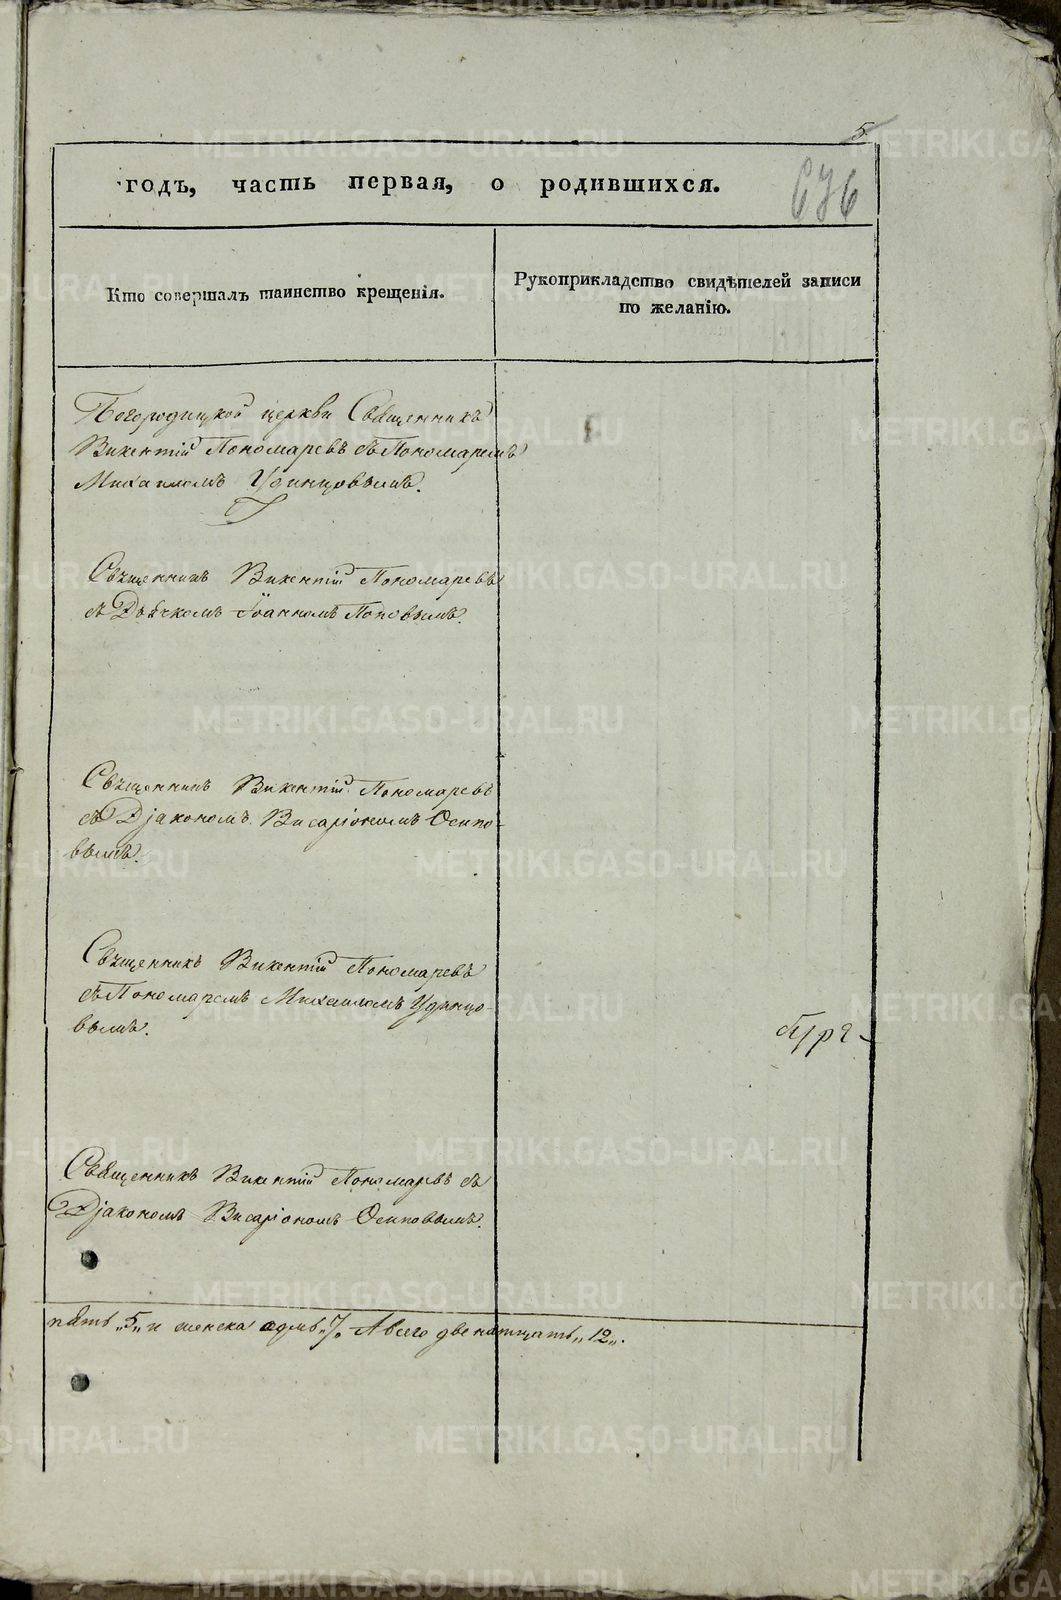 5
годъ, часть первая, о родившихся.
676
Кто совершалъ таинство крещенія.
Рукоприкладство свидѣтелей записи
по желанію.
Богородицкой церкви Священникъ
Викентій Пономаревъ съ Пономаремъ
Михаиломъ Удинцовымъ.
Священникъ Викентій Пономаревъ
съ Дьячкомъ Іоанномъ Поповымъ.
Священникъ Викентій Пономаревъ
съ Діякономъ Висаріономъ Осипо-
вымъ.
Священникъ Викентій Пономаревъ
съ Пономаремъ Михаиломъ Удинцо-
вымъ.
Священникъ Викентій Пономаревъ съ
Діякономъ Висаріономъ Осиповымъ.
пять „5„ и женска седмь „7„ А всего двенатцать „12„.
METRIKI.GASO-URAL.RU